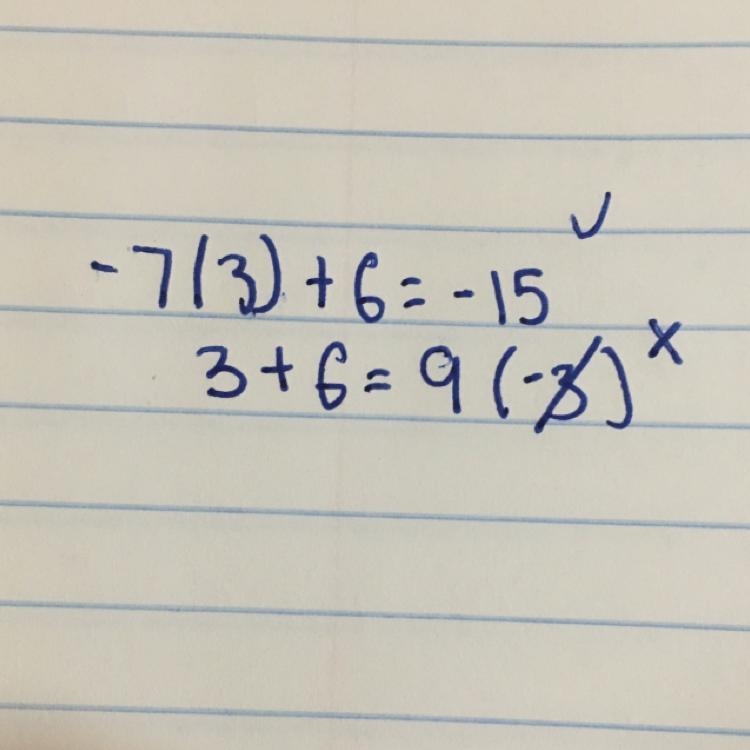 -7(3)+6=-15 ✓
3+6=9(-3) x